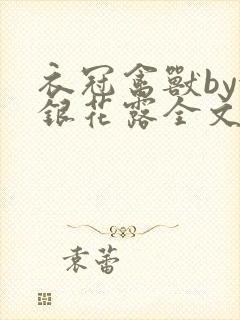 衣冠禽獸by
銀花露全文
袁蕾